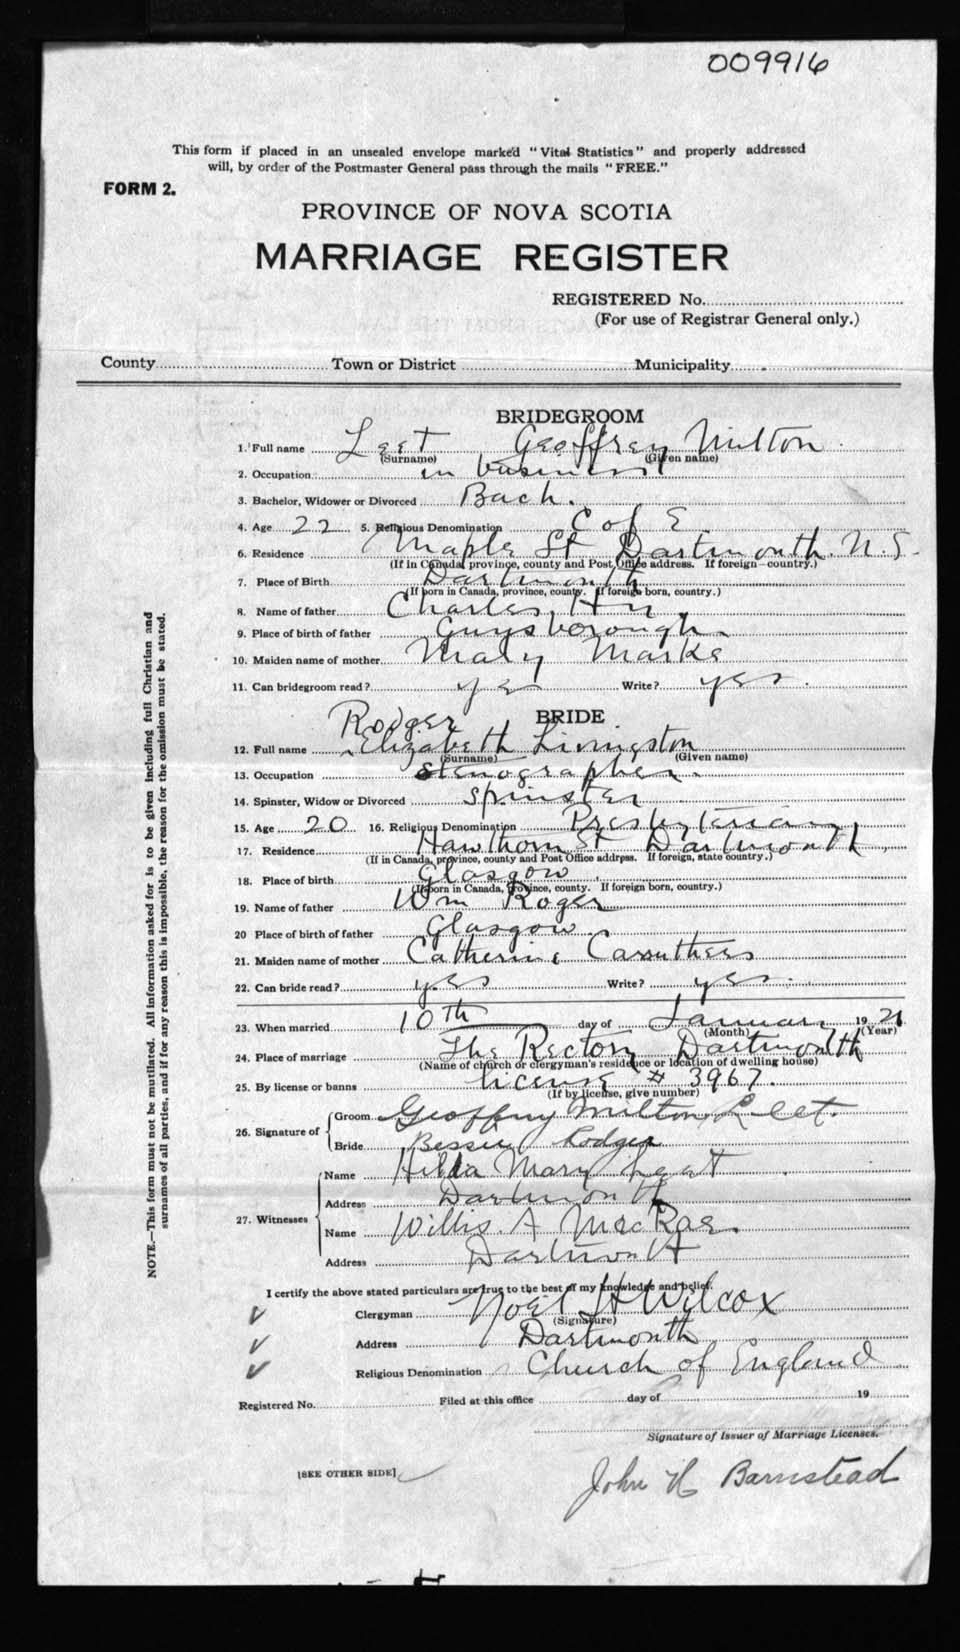 009916
This form if placed in an unsealed envelope marked "Vital Statistics" and properly addressed
will, by order of the Postmaster General pass through the mails "FREE."
FORM 2.
PROVINCE OF NOVA SCOTIA
MARRIAGE REGISTER
REGISTERED No.
(For use of Registrar General only.)
County Town or District Municipality
BRIDEGROOM
1. Full name Leet Geoffrey Milton
(Surname) (Given name)
2. Occupation in business
3. Bachelor, Widower or Divorced Bach.
4. Age 22 5. Religious Denomination C of E
6. Residence Maple St Dartmouth N.S.
(If in Canada, province, county and Post Office address. If foreign—country.)
7. Place of Birth Dartmouth
(If born in Canada, province, county. If foreign born, country.)
8. Name of father Charles Hy.
9. Place of birth of father Guysborough
10. Maiden name of mother Mary Marks
11. Can bridegroom read? yes Write? yes.
Rodger BRIDE
12. Full name Elizabeth Livingston
(Surname) (Given name)
13. Occupation Stenographer.
14. Spinster, Widow or Divorced Spinster
15. Age 20 16. Religious Denomination Presbyterian
17. Residence Hawthorn St Dartmouth
(If in Canada, province, county and Post Office address. If foreign, state country.)
18. Place of birth Glasgow
(If born in Canada, province, county. If foreign born, country.)
19. Name of father Wm Roger
20 Place of birth of father Glasgow
21. Maiden name of mother Catherine Caruthers
22. Can bride read? yes Write? yes
23. When married 10th day of January 1921
(Month) (Year)
24. Place of marriage The Rectory Dartmouth
(Name of church or clergyman's residence or location of dwelling house)
25. By license or banns license # 3967.
(If by license, give number)
26. Signature of Groom Geoffrey Milton Leet.
Bride Bessie Rodger
27. Witnesses Name Hilda Mary Leet
Address Dartmouth
Name Willis A MacRae.
Address Dartmouth
I certify the above stated particulars are true to the best of my knowledge and belief.
Clergyman Noel H Wilcox
(Signature)
Address Dartmouth
Religious Denomination Church of England
Registered No. Filed at this office day of 19
Signature of Issuer of Marriage Licenses.
[SEE OTHER SIDE]
John H Barnstead
NOTE.—This form must not be mutilated. All information asked for is to be given including full Christian and
surnames of all parties, and if for any reason this is impossible, the reason for the omission must be stated.